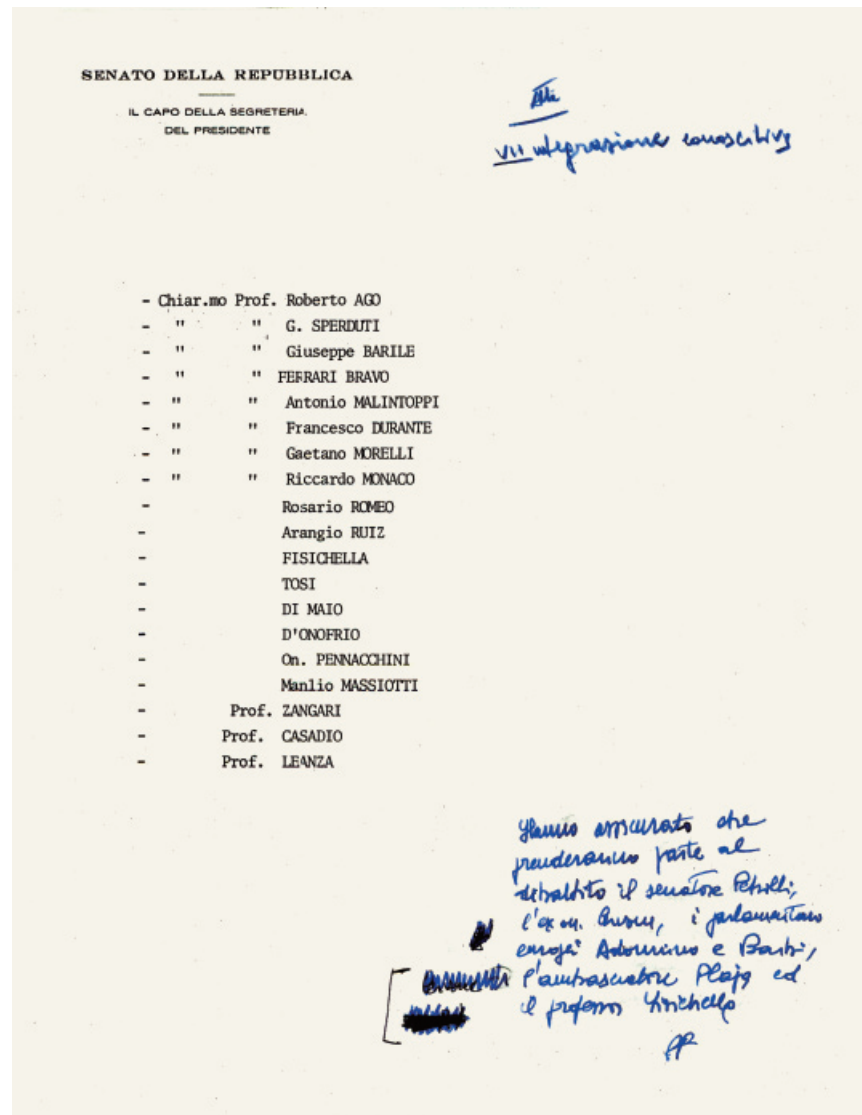 SENATO DELLA REPUBBLICA
IL CAPO DELLA SEGRETERIA
DEL PRESIDENTE
VII integrazione conoscitiva
- Chiar.mo Prof. Roberto AGO
- " " G. SPERDUTI
- " " Giuseppe BARILE
- " " FERRARI BRAVO
- " " Antonio MALINTOPPI
- " " Francesco DURANTE
- " " Gaetano MORELLI
- " " Riccardo MONACO
- Rosario ROMEO
- Arangio RUIZ
- FISICHELLA
- TOSI
- DI MAIO
- D'ONOFRIO
- On. PENNACCHINI
- Manlio MASSIOTTI
- Prof. ZANGARI
- Prof. CASADIO
- Prof. LEANZA
Hanno assicurato che
prenderanno parte al
dibattito il senatore Petrilli,
l'ex on. i parlamentari
europei Adonnino e
l'ambasciatore Plaja ed
il professor